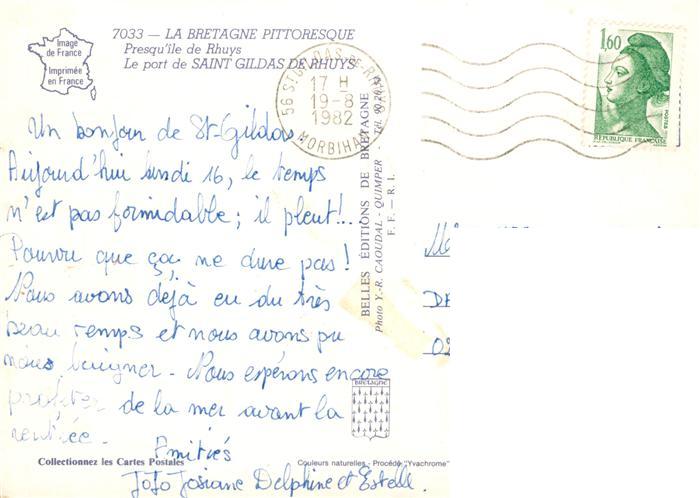 7033 — LA BRETAGNE PITTORESQUE
Presqu'île de Rhuys
Le port de SAINT GILDAS DE RHUYS
Image
de France
Imprimée
en France
56 ST GILDAS DE RHUYS
17 H
19-8
1982
MORBIHAN
1,60
POSTES
RÉPUBLIQUE FRANÇAISE
Un bonjour de St-Gildas
Aujourd'hui lundi 16, le temps
n'est pas formidable; il pleut!..
Pourvu que ça ne dure pas!
Nous avons déjà eu du très
beau temps et nous avons pu
nous baigner. Nous espérons encore
profiter de la mer avant la
rentrée.
Amitiés
JoJo Josiane Delphine et Estelle.
BELLES ÉDITIONS DE BRETAGNE
Photo Y.-R. CAOUDAL - QUIMPER -
F. F. — R. I.
BRETAGNE
Collectionnez les Cartes Postales
Couleurs naturelles - Procédé "Yvachrome"